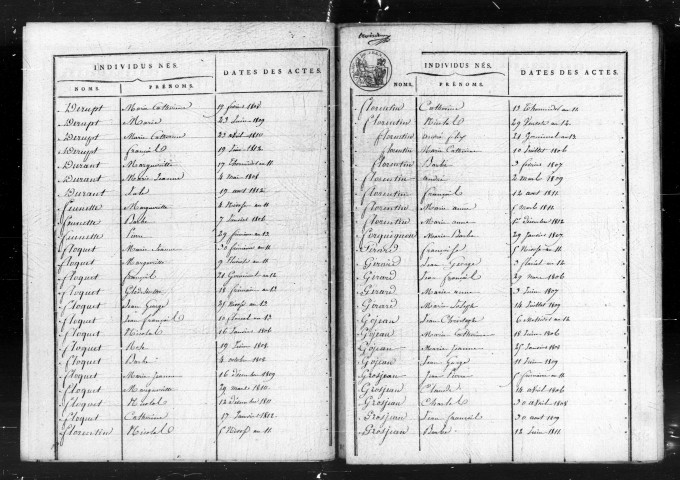 INDIVIDUS NÉS. DATES DES ACTES.
NOMS. PRÉNOMS.
Derupt Marie Catherine 19 février 1808
Derupt Marie 23 1809
Derupt Marie Catherine 23 avril 1810
Derupt françois 19 Juin 1812
Durant Marguerite 17 Thermidor an 11
Durant Marie Jeanne 4 mai 1808
Durant 19 aout 1812
Marguerite 4 Nivose an 11
Barbe 7 Janvier 1806
29 frimaire an 13
floquet Marie Jeanne 30 frimaire an 11
floquet Marguerite 9 an 11
floquet françois 21 Germinal an 12
floquet 18 frimaire an 13
floquet Jean George 21 Nivose an 13
floquet Jean françois 10 floreal an 13
floquet Nicolas 16 Janvier 1806
floquet Rose 19 1808
floquet Barbe 4 octobre 1808
floquet Marie Jeanne 16 décembre 1809
floquet Marguerite 29 mars 1810
floquet Nicolas 12 décembre 1811
floquet Catherine 17 Janvier 1812
florentin Nicolas 5 Nivose an 11
INDIVIDUS NÉS. DATES DES ACTES.
NOMS. PRÉNOMS.
florentin Catherine 13 Thermidor an 11
florentin Nicolas 29 Ventose an 12
florentin 21 Germinal an 13
florentin Marie Catherine 10 Juillet 1806
florentin Barbe 3 février 1807
florentin André 2 mars 1809
florentin françois 12 aout 1811
florentin Marie anne 5 mars 1812
florentin Marie anne 1er décembre 1812
Marie Barbe 29 Janvier 1807
Gérard françois 5 Nivose an 11
Gérard Jean George 3 floréal an 12
Gérard Jean françois 29 mars 1806
Gérard Marie anne 3 Juin 1807
Gérard 14 Juillet 1809
Gojean Jean Christophe 6 Messidor an 12
Gojean Marie Catherine 18 Juin 1806
Gojean Marie Jeanne 25 Janvier 1808
Gojean Jean George 11 Juin 1809
Grosjean Jean Pierre 5 frimaire an 11
Grosjean Claude 14 avril 1806
Grosjean Charles 30 avril 1808
Grosjean Jean françois 30 aout 1809
Grosjean Barbe 12 Juin 1811